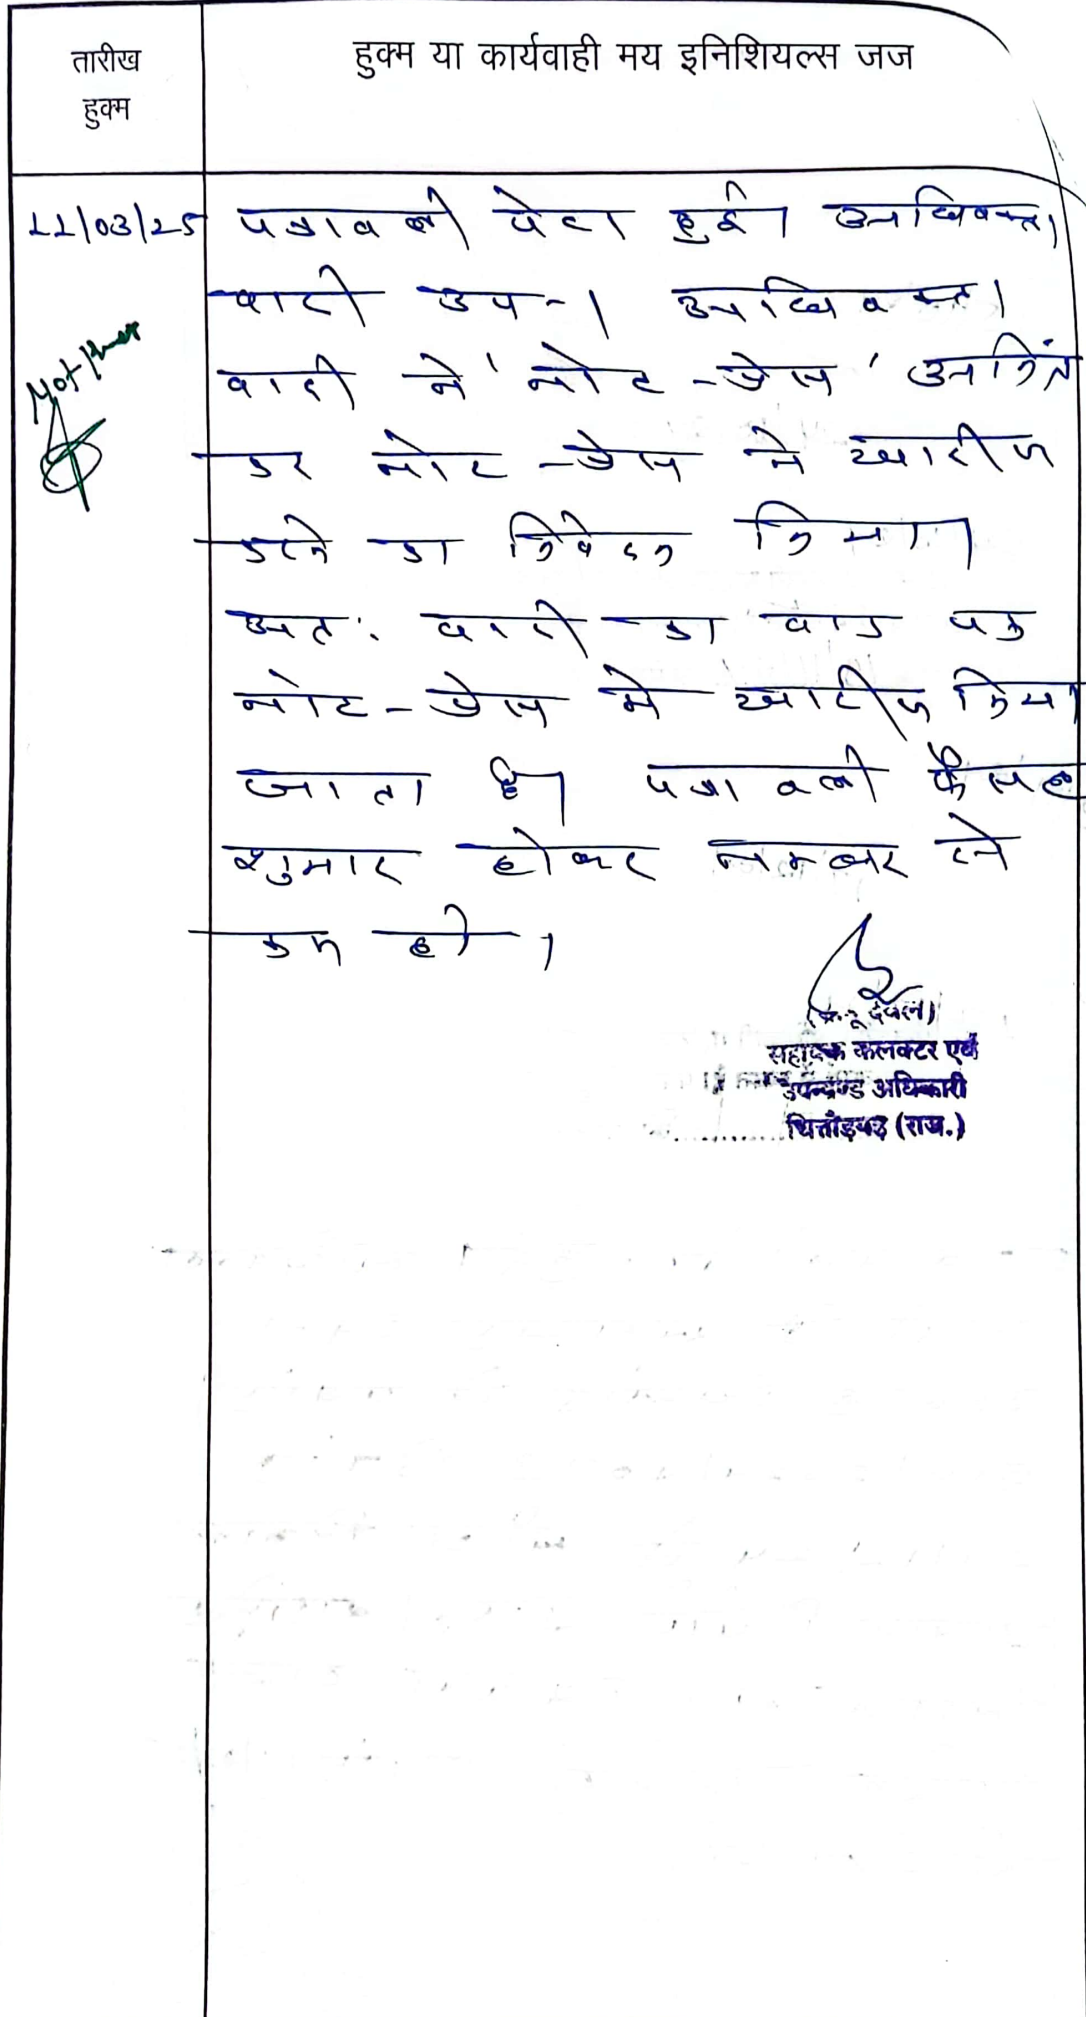 तारीख
हुक्म
हुक्म या कार्यवाही मय इनिशियल्स जज
पत्रावली पेश हुई। अधिवक्ता
वादी उप-। अधिवक्ता
वादी ने 'नोट-प्रेस' अंकित
कर नोट-प्रेस में खारीज
करने का निवेदन किया।
अतः वादी का वाद पत्र
नोट-प्रेस में खारीज किया
जाता है। पत्रावली फैसल
शुमार होकर नम्बर से
कम हो।
Not Press
सहायक कलक्टर एवं
उपखण्ड अधिकारी
चित्तौड़गढ़ (राज.)